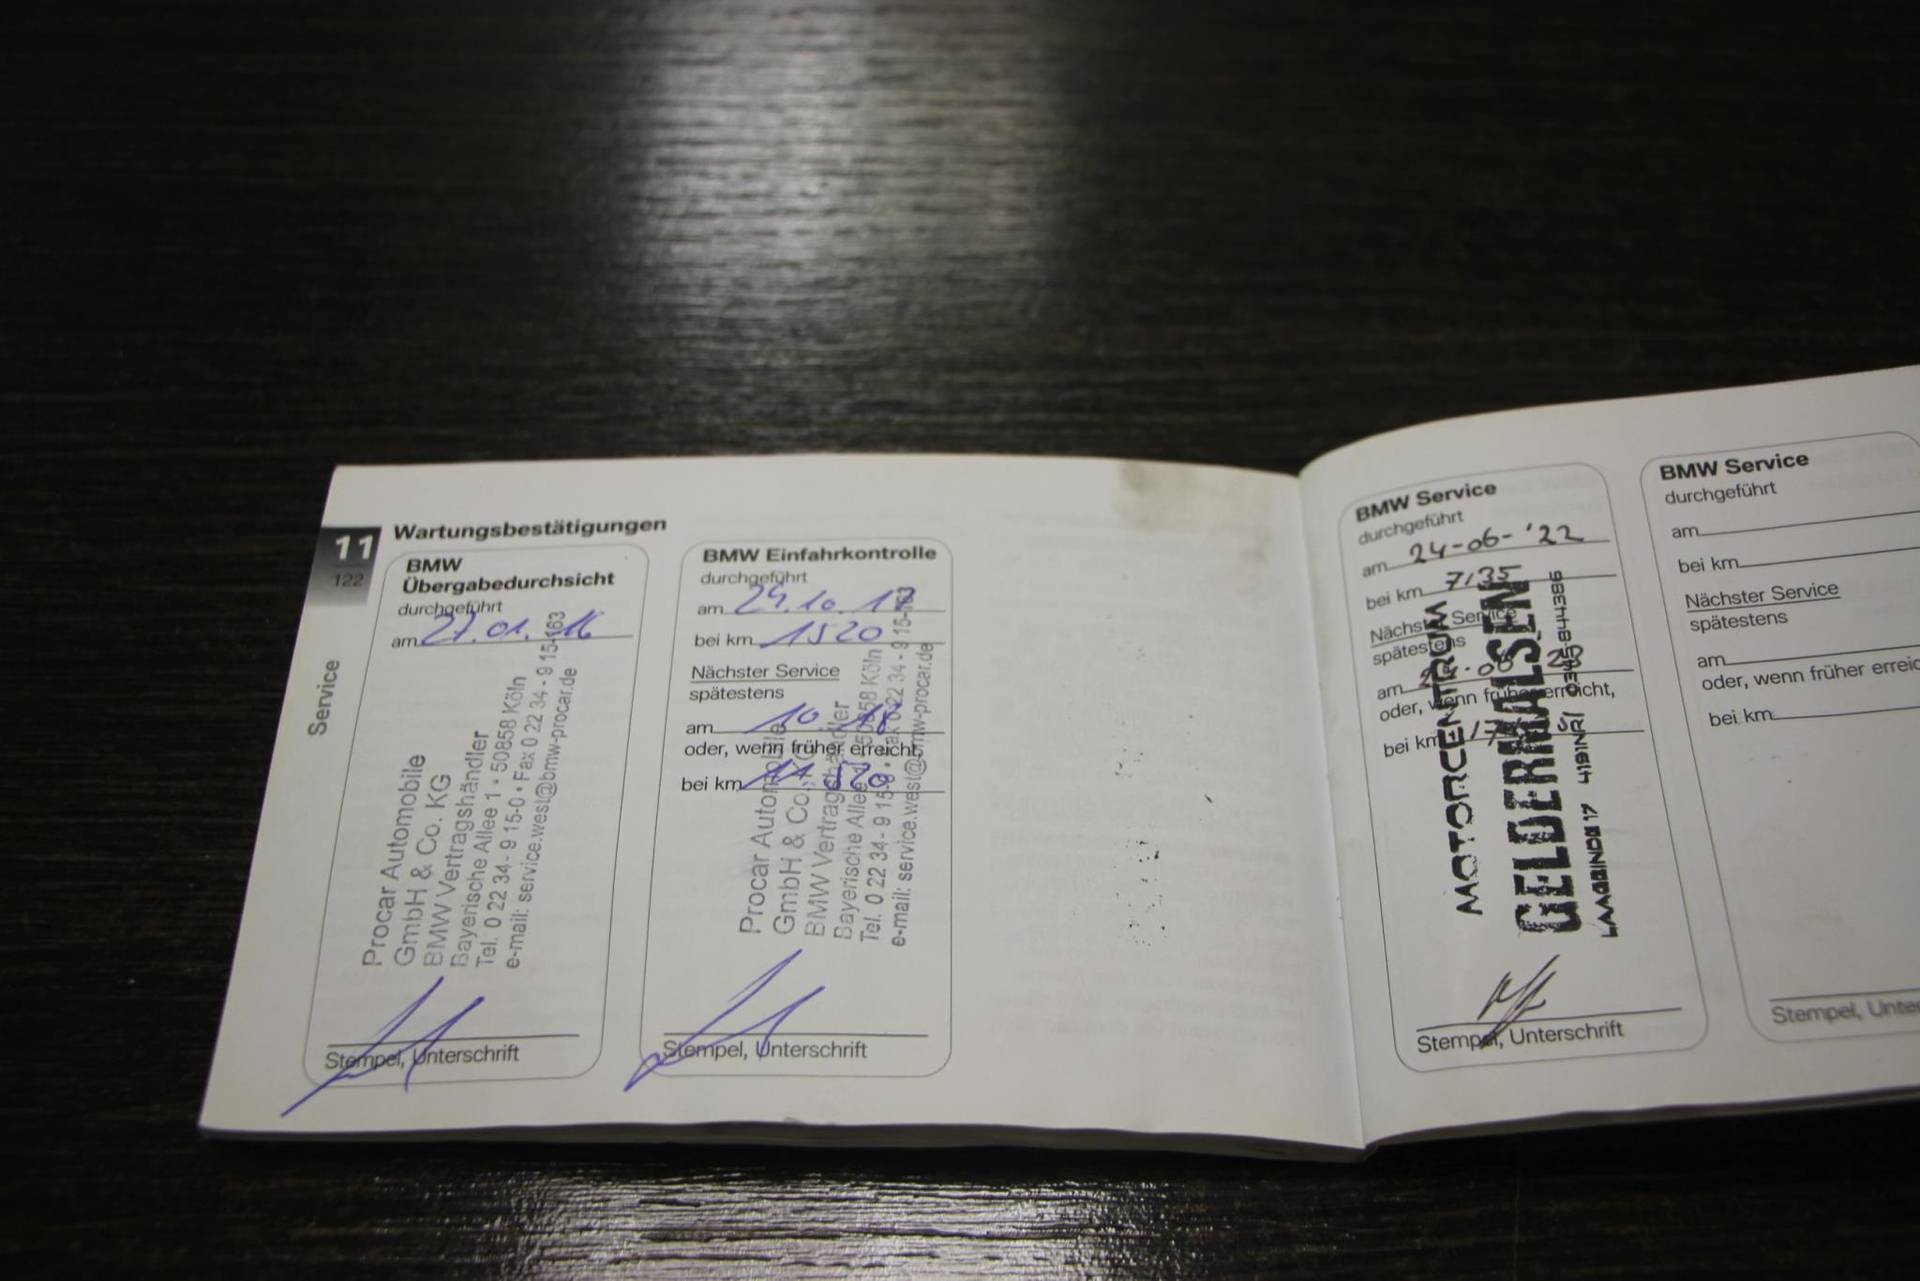 11
122
Service
Wartungsbestätigungen
BMW
Übergabedurchsicht
durchgeführt
am 27.01.16
Procar Automobile
GmbH & Co. KG
BMW Vertragshändler
Bayerische Allee 1 • 50858 Köln
Tel. 0 22 34 - 9 15-0 • Fax 0 22 34 - 9 15-163
e-mail: service.west@bmw-procar.de
Stempel, Unterschrift
BMW Einfahrkontrolle
durchgeführt
am 24.10.
bei km 1520
Nächster Service
spätestens
am 10.18
oder, wenn früher erreicht,
bei km 11520
Procar Automobile
GmbH & Co.
BMW Vertragshändler
Bayerische Allee 1 50858 Köln
Tel. 0 22 34 - 9 15-0 • Fax 0 22 34 - 9 15-163
e-mail: service.west@bmw-procar.de
Stempel, Unterschrift
BMW Service
durchgeführt
am 24-06-'22
bei km 7135
Nächster Service
spätestens
am
oder, wenn früher erreicht,
bei km
MOTORCENTRUM
GELDERMALSEN
17 0345-844386
Stempel, Unterschrift
BMW Service
durchgeführt
am
bei km
Nächster Service
spätestens
am
oder, wenn früher
bei km
Stempel,